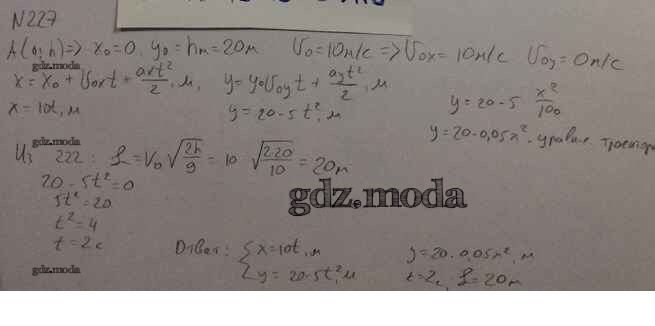 N227
A(0; h) => x₀ = 0, y₀ = hм = 20м V₀ = 10м/с => V₀x = 10м/с V₀y = 0м/с
gdz.moda
x = x₀ + V₀xt + axt²/2, м, y = y₀V₀yt + ayt²/2, м
x = 10t, м y = 20 - 5t², м
y = 20 - 5 x²/100
y = 20 - 0,05x² -
gdz.moda
Из 222: L = V₀ √2h/g = 10 √2·20/10 = 20м
20 - 5t² = 0
5t² = 20
t² = 4
t = 2с
gdz.moda
Ответ: { x = 10t, м y = 20 - 5t², м
y = 20 - 0,05x², м
t = 2с, L = 20м
gdz.moda